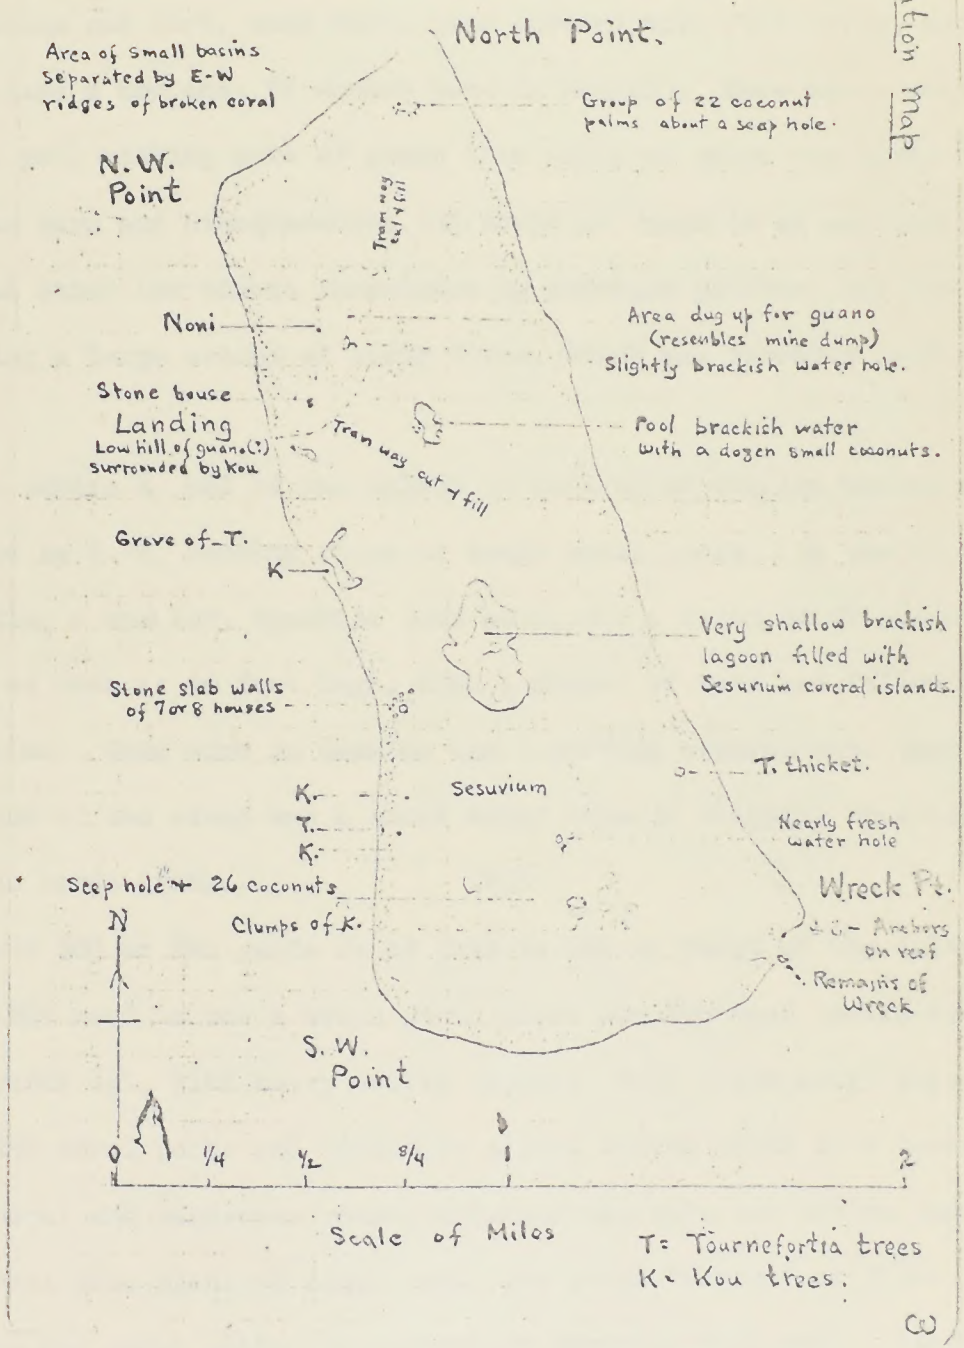 ation Map
North Point.
Area of small basins
separated by E-W
ridges of broken coral
Group of 22 coconut
palms about a seep hole.
N.W.
Point
Tram way
cut & fill
Noni
Area dug up for guano
(resembles mine dump)
Slightly brackish water hole.
Stone house
Landing
Low hill of guano(?)
surrounded by Kou
Tram way cut & fill
Pool brackish water
with a dozen small coconuts.
Grove of T.
K
Very shallow brackish
lagoon filled with
Sesuvium covered islands.
Stone slab walls
of 7 or 8 houses
T. thicket.
K.
Sesuvium
T.
K.
Nearly fresh
water hole
Seep hole + 26 coconuts
Clumps of K.
Wreck Pt.
Anchors
on reef
Remains of
Wreck
N
S.W.
Point
0 1/4 1/2 3/4 1 2
Scale of Miles
T= Tournefortia trees
K= Kou trees.
3